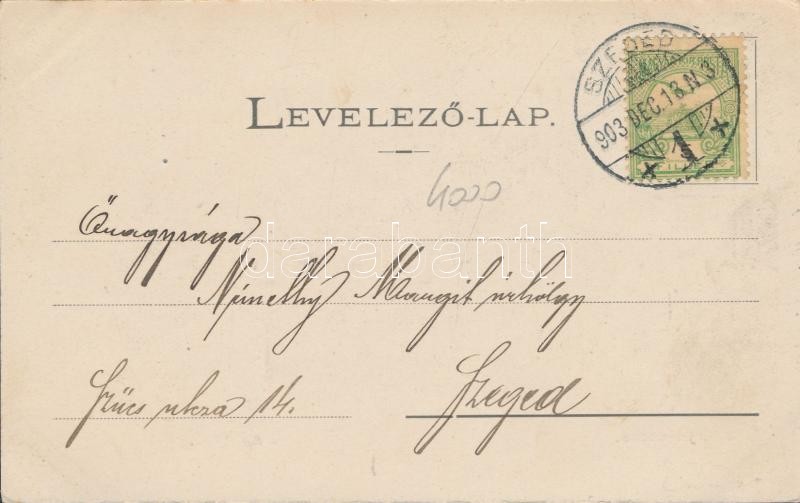 LEVELEZŐ-LAP.
SZEGED
903 DEC. 13. N 3
1
4000
Őnagysága
Némethy Margit úrhölgy
Szűcs utcza 14.
Szeged
darabanth